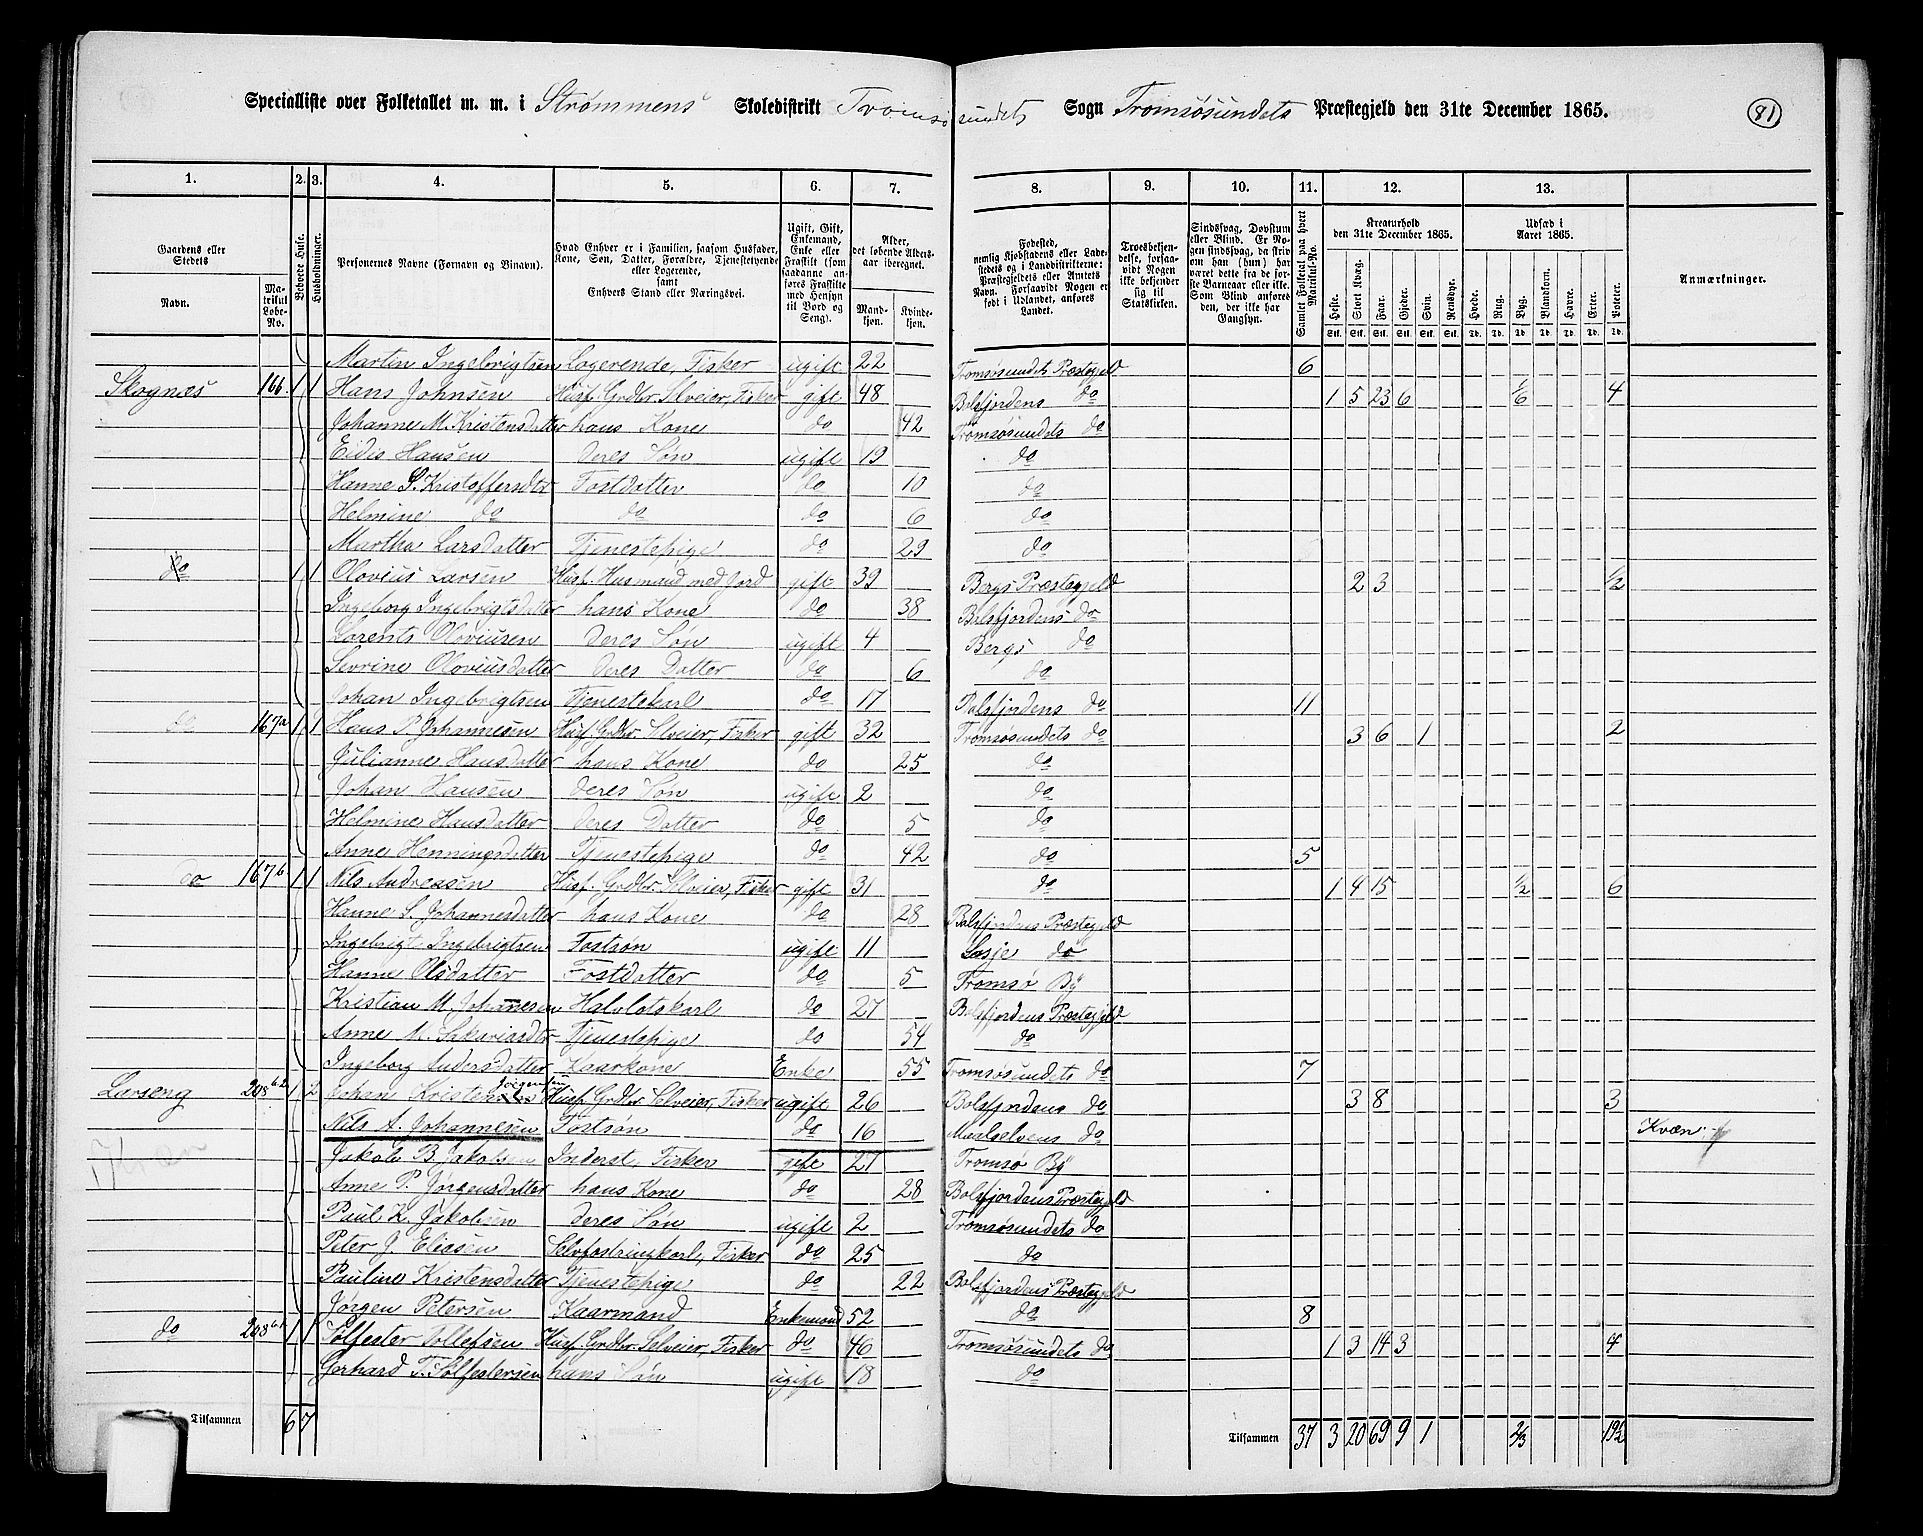 Specialliste over Folketallet m. m. i Strømmens Skoledistrikt Tromsøsundets Sogn Tromsøsundets Præstegjeld den 31te December 1865. 81
1. 2. 3. 4. 5. 6. 7. 8. 9. 10. 11. 12. 13.
Gaardens eller Stedets
Navn. Matrikul Løbe-No.
Beboede Huse.
Husholdninger.
Personernes Navne (Fornavn og Binavn).
Hvad Enhver er i Familien, saasom Husfader, Kone, Søn, Datter, Forældre, Tjenestetyende eller Logerende, samt Enhvers Stand eller Næringsvei.
Ugift, Gift, Enkemand, Enke eller Fraskilt (som saadanne anføres Fraskilte med Hensyn til Bord og Seng).
Alder, det løbende Aldersaar iberegnet.
Mandkjøn. Kvindekjøn.
Fødested, nemlig Kjøbstadens eller Ladestedets og i Landdistrikterne: Præstegjeldets eller Amtets Navn. Forsaavidt Nogen er født i Udlandet, anføres Landet.
Troesbekjendelse, forsaavidt Nogen ikke bekjender sig til Statskirken.
Sindssvag, Døvstum eller Blind. Er Nogen sindssvag, da skrives om han (hun) har været dette fra de første Barneaar eller ikke. Som Blind anføres den, der ikke har Gangsyn.
Samlet Folketal paa hvert Matrikul-No.
Kreaturhold den 31te December 1865.
Heste. Stort Kvæg. Faar. Gjeder. Svin. Rensdyr.
Udsæd i Aaret 1865.
Hvede. Rug. Byg. Blandkorn. Havre. Erter. Poteter.
Anmærkninger.
Martin Ingebrigtsen Logerende, Fisker ugift 22 Tromsøsundets Præstegjeld 6
Skognæs 166. 1 1 Hans Johnsen Husf. Grdbr. Selveier, Fisker gift 48 Balsfjordens do 1 5 23 6 1/6 4
Johanne M. Kristensdatter hans Kone do 42 Tromsøsundets do
Eidis Hansen deres Søn ugift 19 do
Hanne S. Kristoffersdtr Fostdatter do 10 do
Helmine do do do 6 do
Martha Larsdatter Tjenestepige do 29 do
do 1 1 Olovius Larsen Husf. Husmand med Jord gift 39 Bergs Præstegjeld 2 3 1/2
Ingeborg Ingebrigtsdatter hans Kone do 38 Balsfjordens do
Lorents Oloviusen deres Søn ugift 4 Bergs do
Sevrine Oloviusdatter deres Datter do 6 do
Johan Ingebrigtsen Tjenestekarl do 17 Balsfjordens do 11
do 167a 1 1 Hans P. Johannesen Husf. Grdbr. Selveier, Fisker gift 32 Tromsøsundets do 3 6 1 2
Julianne Hansdatter hans Kone do 25 do
Johan Hansen deres Søn ugift 2 do
Helmine Hansdatter deres Datter do 5 do
Anne Henningsdatter Tjenestepige do 42 do 5
do 167b 1 1 Nils Andreasen Husf. Grdbr. Selveier, Fisker gift 31 do 1 4 15 1/2 6
Hanne S. Johannesdatter hans Kone do 28 Balsfjordens Præstegjeld
Ingebrigt Ingebrigtsen Fostsøn ugift 11 do
Hanne Olsdatter Fostdatter do 5 Tromsø By
Kristian M. Johannesen Halvlotskarl do 27 Balsfjordens Præstegjeld
Anne M. Sakariasdtr Tjenestepige do 54 do
Ingeborg Andersdatter Kaarkone Enke 55 Tromsøsundets do 7
Larseng 208 1 2 Johan Kristen Jørgensen Husf. Grdbr. Selveier, Fisker ugift 26 Balsfjordens do 3 8 3
Nils A. Johannesen Fostsøn do 16 Maalselvens do Kvæn
1 Kvæn Jakob B. Jakobsen Inderst, Fisker gift 27 Tromsø By
Anne P. Jørgensdatter hans Kone do 28 Balsfjordens Præstegjeld
Paul K. Jakobsen deres Søn ugift 2 Tromsøsundets do
Peter J. Eliasen Selvfostringkarl, Fisker do 25 do
Pauline Kristensdatter Tjenestepige do 22 Balsfjordens Præstegjeld
Jørgen Petersen Kaarmand Enkemand 52 do 8
do 208 1 1 Solfester Tollefsen Husf. Grdbr. Selveier, Fisker do 46 Tromsøsundets do 1 3 14 3 4
Gerhard T. Solfestersen hans Søn ugift 18 do
Tilsammen 6 7 Tilsammen 37 3 20 69 9 1 2/3 19 1/2